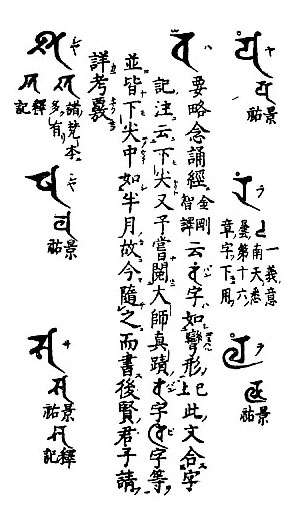 𑖧 ヤ 𑖧 景祐
𑖨 ラ 一義意南天悉曇第十六章字下用
𑖩 ラ 𑖩 景祐
𑖪 要略念誦經金剛智譯云𑖪字如彎形已上此文合字
記注云下尖又予嘗閱大師真蹟字字等
並皆下尖中如半月故今隨之而書後賢君子請
詳考覈
𑖫 シャ 𑖫 諸梵本多有 𑖫 釋記
𑖬 シャ 𑖬 景祐
𑖭 サ 𑖭 景祐 𑖭 釋記